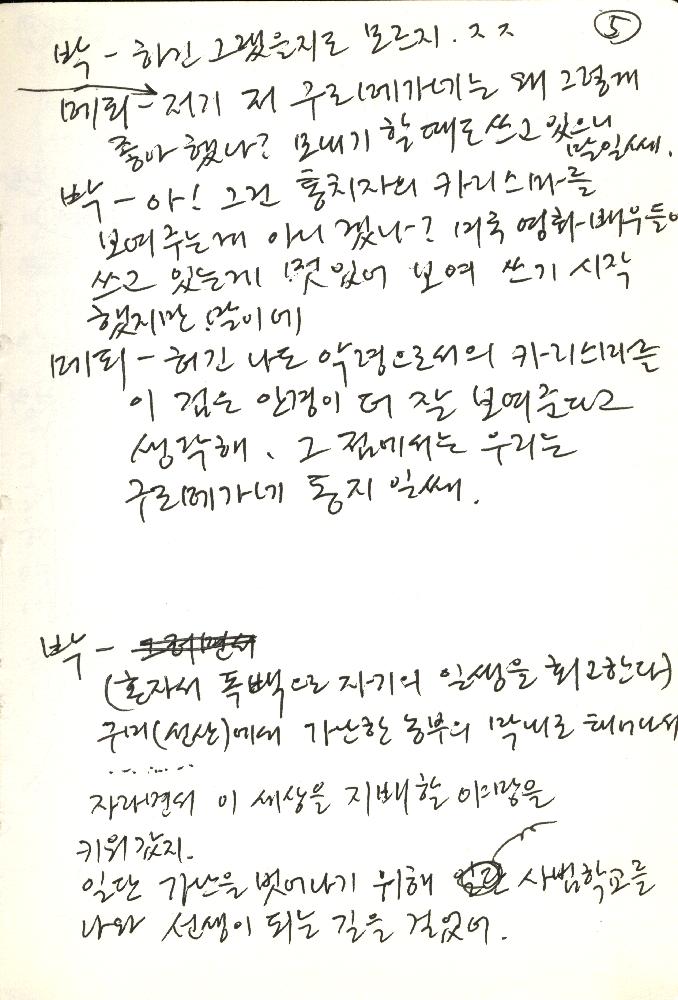 ⑤
박 - 하긴 그랬을지도 모르지. ㅈㅈ
메피 - 저기 저 구리메가네는 왜 그렇게
좋아했나? 모내기 할때도 쓰고 있으니
말일쎄.
박 - 아! 그건 통치자의 카리스마를
보여주는게 아니겠나? 미국 영화배우들이
쓰고 있는게 멋있어 보여 쓰기 시작
했지만 말이네
메피 - 허긴 나도 악령으로서의 카리스마를
이 검은 안경이 더 잘 보여준다고
생각해. 그 점에서는 우리는
구리메가네 동지 일쎄.
박 -
(혼자서 독백으로 자기의 일생을 회고한다)
구미(선산)에서 가난한 농부의 막내로 태어나서
......
자라면서 이 세상을 지배할 야망을
키워갔지.
일단 가난을 벗어나기 위해 사범학교를
나와 선생이 되는 길을 걸었어.